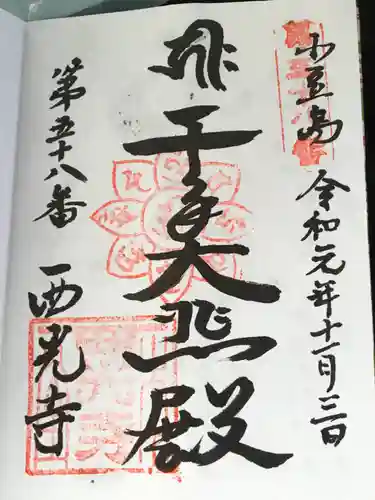 小豆島
令和元年十一月三日
千手大悲殿
第五十八番
西光寺